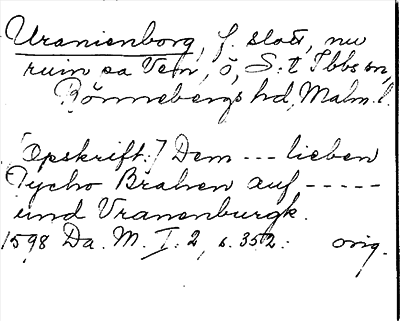 Uranienborg, f. slott, nu
ruin på Ven, ö, S:t Ibbs sn,
Rönnebergs hd, Malm. l.
[Opskrift:] Dem --- lieben
Tycho Brahen auf -----
und Vranenburgk.
1598 Da. M. I. 2, s. 352. orig.